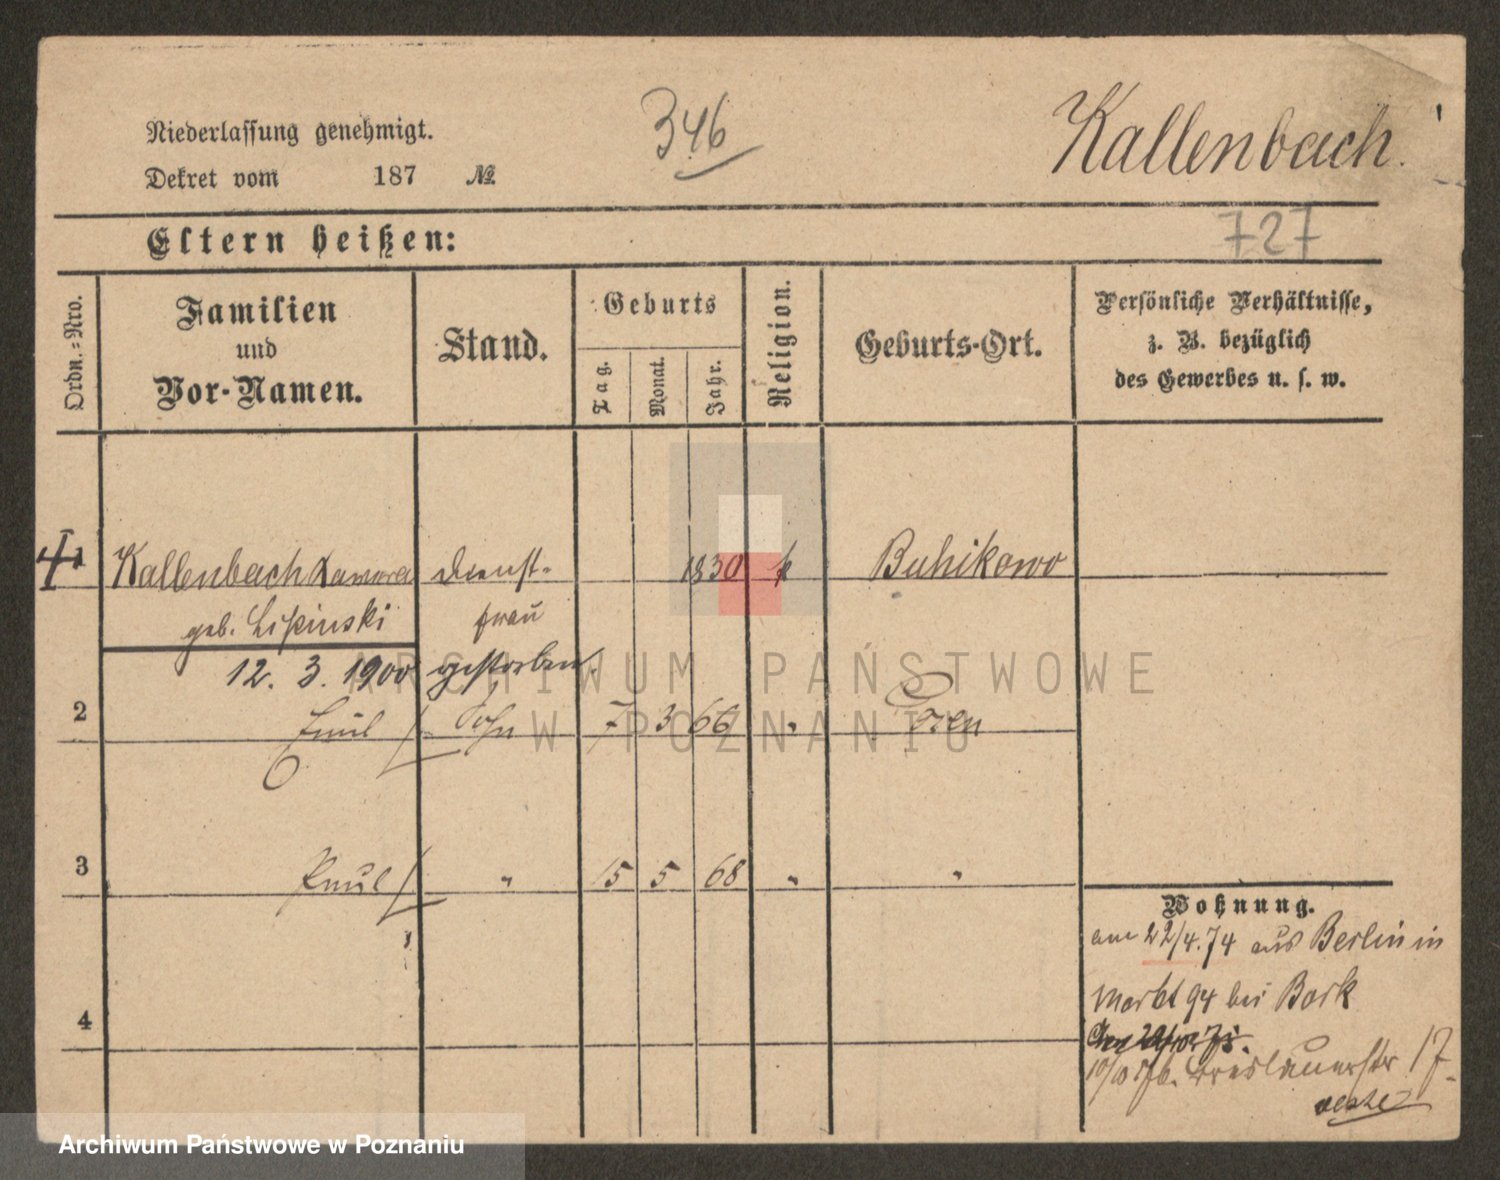 346
Kallenbach.
Niederlassung genehmigt.
Dekret vom 187 №
727
Eltern heißen:
Ordn.=Nro.
Familien
und
Vor-Namen.
Stand.
Geburts
Tag.
Monat.
Jahr.
Religion.
Geburts-Ort.
Persönliche Verhältnisse,
z. B. bezüglich
des Gewerbes u. s. w.
1 Kallenbach Dienst- 1830 k Buhikowo
geb. Lipinski frau
12. 3. 1900 gestorben.
2 Emil Sohn 7 3 66 "
3 Paul " 15 5 68 " "
4
Wohnung.
am 22/4.74 aus Berlin in
Markt 94 bei Bork
10/10 76. Breslauerstr 17
ARCHIWUM PAŃSTWOWE
W POZNANIU
Archiwum Państwowe w Poznaniu